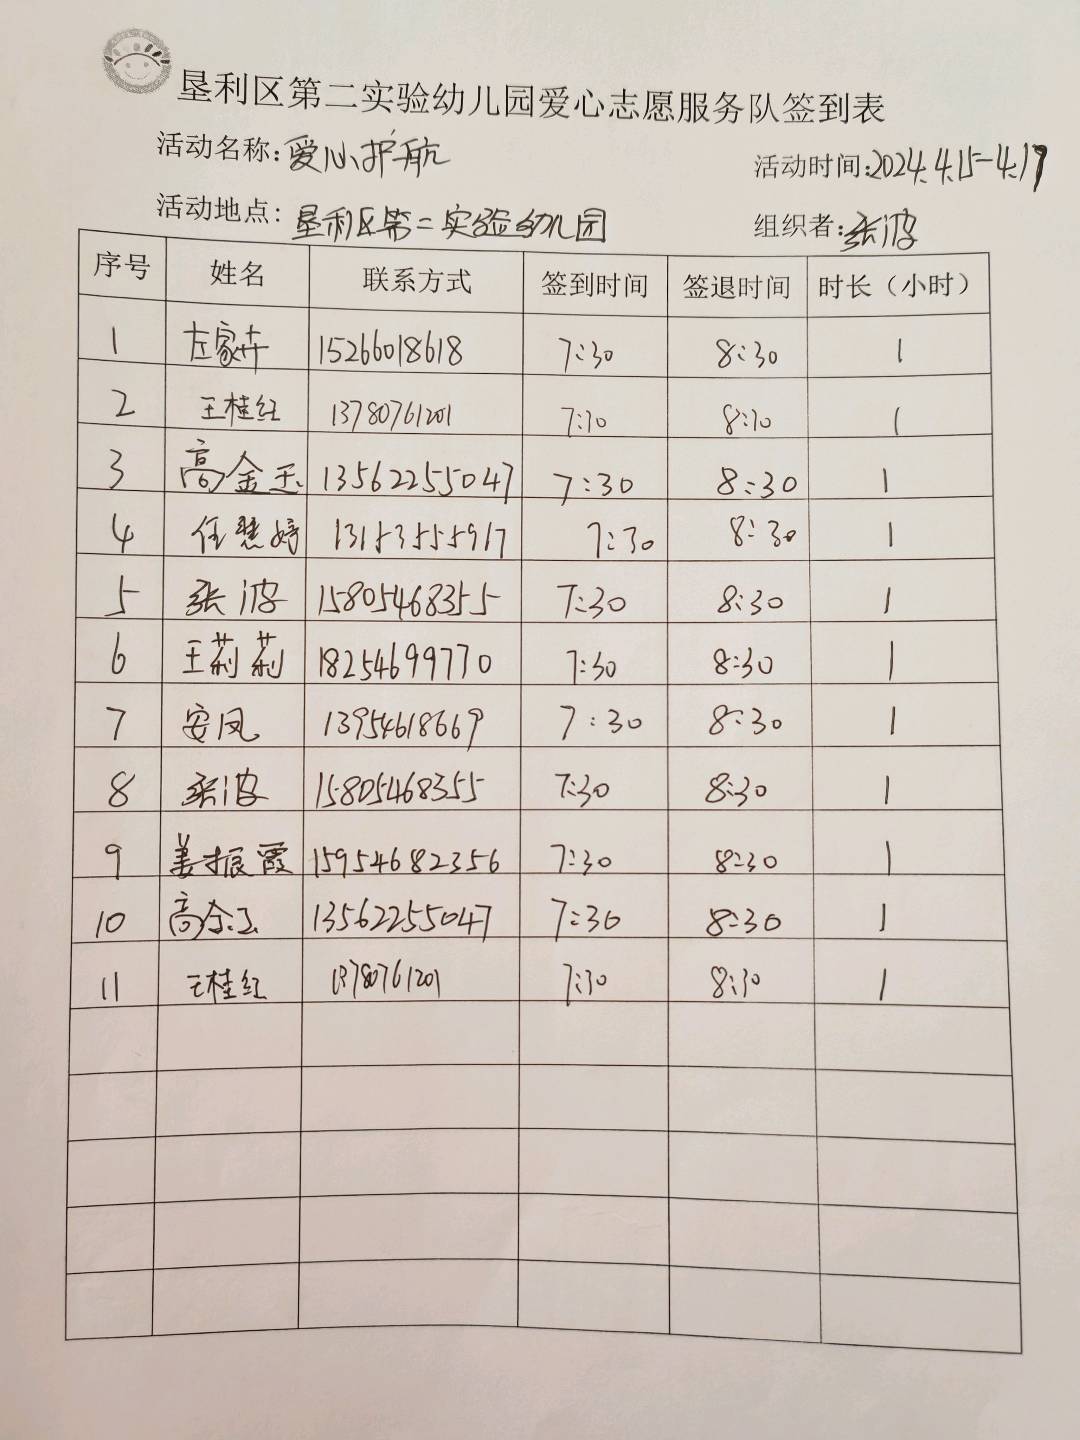 垦利区第二实验幼儿园爱心志愿服务队签到表
活动名称:爱心护航 活动时间:2024.4.15-4.19
活动地点: 垦利区第二实验幼儿园 组织者:张波
序号 姓名 联系方式 签到时间 签退时间 时长（小时）
1 左家卉 15266018618 7:30 8:30 1
2 王桂红 13780761201 7:30 8:30 1
3 高金玉 13562255047 7:30 8:30 1
4 任慧婷 13153555917 7:30 8:30 1
5 张波 15805468355 7:30 8:30 1
6 王莉莉 18254699770 7:30 8:30 1
7 安凤 13954618669 7:30 8:30 1
8 张波 15805468355 7:30 8:30 1
9 姜振霞 15954682356 7:30 8:30 1
10 高金玉 13562255047 7:30 8:30 1
11 王桂红 13780761201 7:30 8:30 1